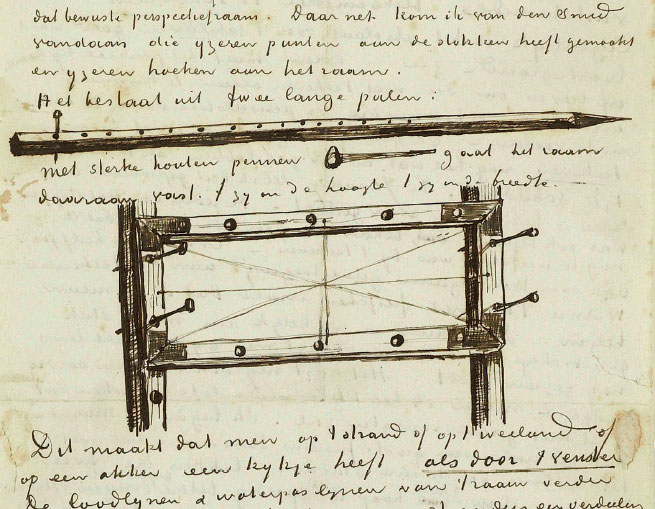 dat bewuste perspectiefraam. Daar net kom ik van den smid
vandaan die yzeren punten aan de stokken heeft gemaakt
en yzeren hoeken aan het raam.
Het bestaat uit twee lange palen:
met sterke houten pennen gaat het raam
daaraan vast. 't zy in de hoogte 't zy in de breedte.
Dit maakt dat men op 't strand of op 't weiland of
op een akker een kykje heeft als door 't venster
De loodlynen & waterpaslynen van 't raam verder